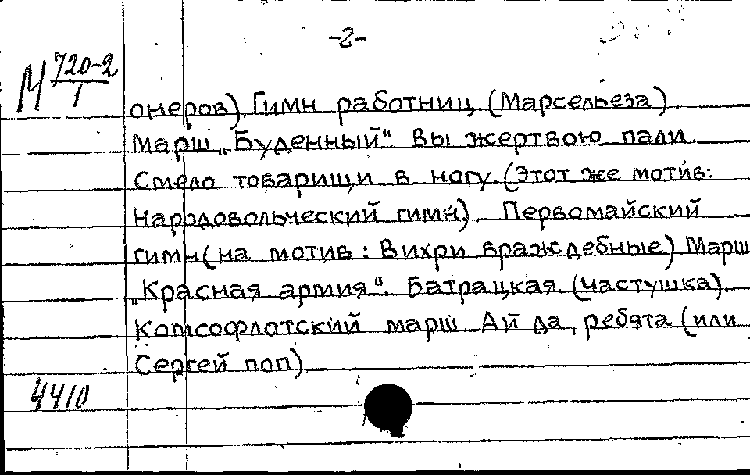 -2-
М 720-2/1
онеров) Гимн работниц (Марсельеза)
Марш „Буденный“ Вы жертвою пали
Смело товарищи в ногу. (Этот же мотив:
Народовольческий гимн). Первомайский
гимн (на мотив: Вихри враждебные) Марш
„Красная армия“. Батрацкая (частушка).
Комсофлотский марш Ай да, ребята (или
Сергей поп)
4410